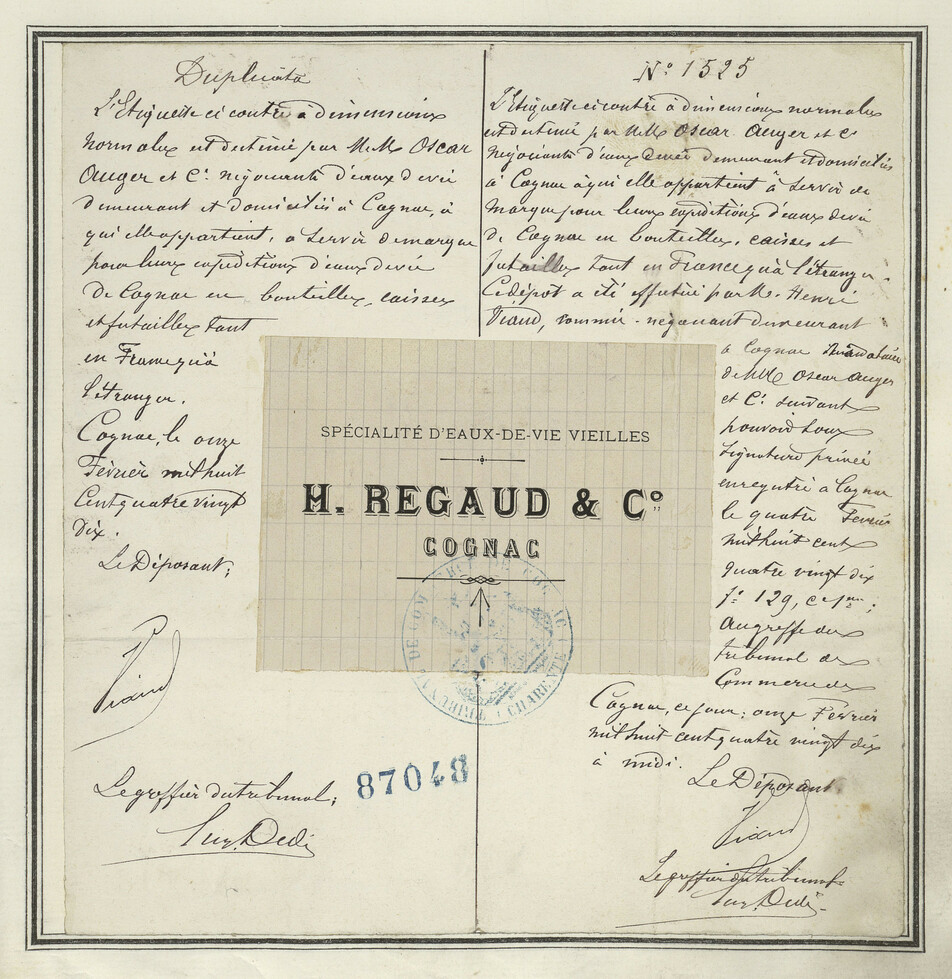 Duplicata
L'Etiquette ci contre à dimensions
normales est destiné par M.M. Oscar
Auger et Cie. négociants d'eaux de vie
demeurant et domiciliés à Cognac, à
qui elle appartient, à servir de marque
pour leurs expéditions d'eaux de vie
de Cognac en bouteilles, caisses
et futailles tant
en France qu'à
l'étranger.
Cognac, le onze
Février mil huit
cent quatre vingt
dix.
Le Déposant;
Viaud
Le greffier du tribunal;
87048
N° 1525
L'Etiquette ci contre à dimensions normales
est destiné par M.M. Oscar Auger et Cie
négociants d'eaux de vie demeurant et domiciliés
à Cognac à qui elle appartient à servir de
marque pour leurs expéditions d'eaux de vie
de Cognac en bouteilles, caisses et
futailles tant en France qu'à l'étranger.
Ce dépôt a été effectué par M. Henri
Viaud, commis-négociant demeurant
à Cognac mandataire
de M.M. Oscar Auger
et Cie. suivant
pouvoir sous
signature privée
enregistré à Cognac
le quatre Février
mil huit cent
quatre vingt dix
fo. 129, c
au greffe du
tribunal de
Commerce de
Cognac, ce jour; onze Février
mil huit cent quatre vingt dix
à midi.
Le Déposant
Viaud
Le greffier du tribunal
SPÉCIALITÉ D'EAUX-DE-VIE VIEILLES
H. REGAUD & Co
COGNAC
TRIBUNAL DE COMMERCE DE COGNAC (CHARENTE)